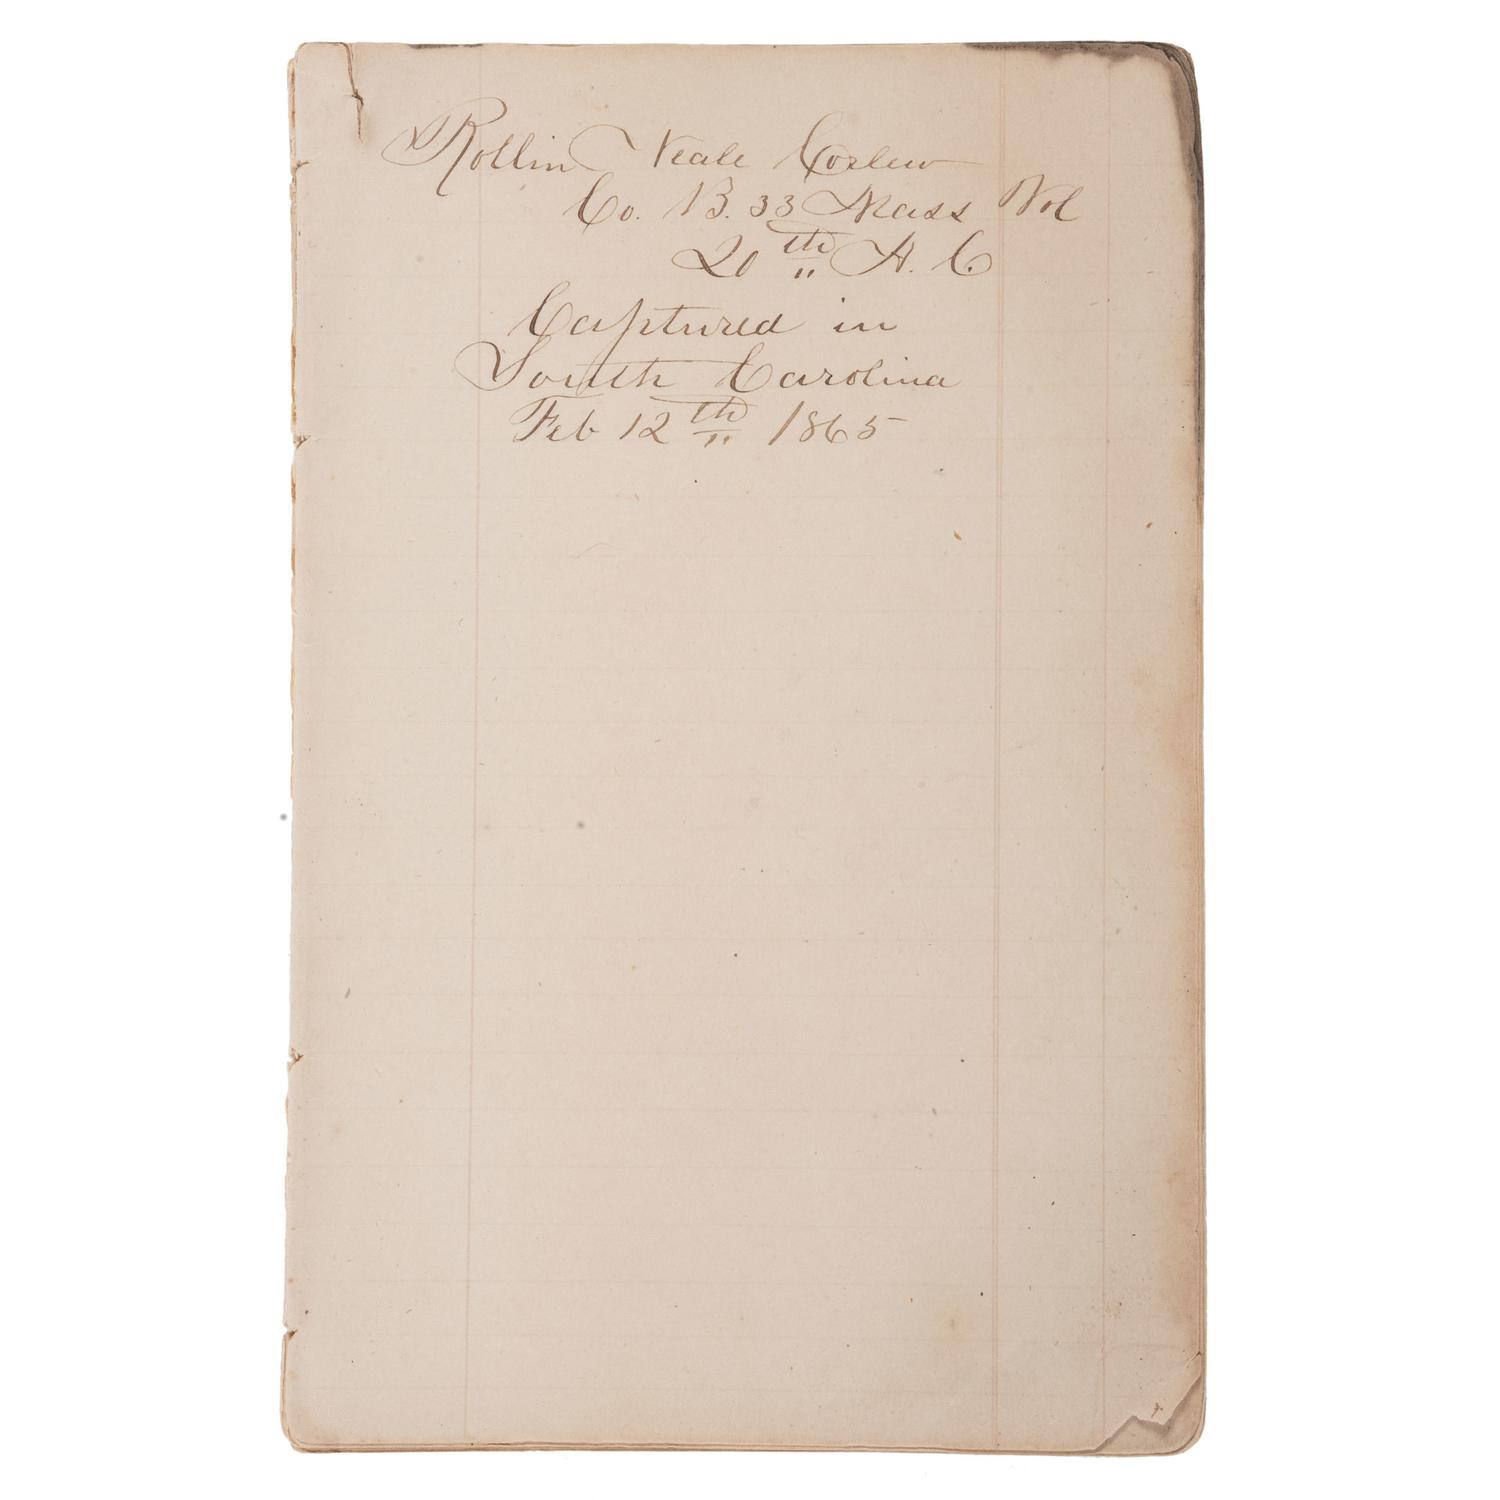 Rollin Neale Corlew
Co. B. 33 Mass Vol
20th A. C.
Captured in
South Carolina
Feb 12th 1865